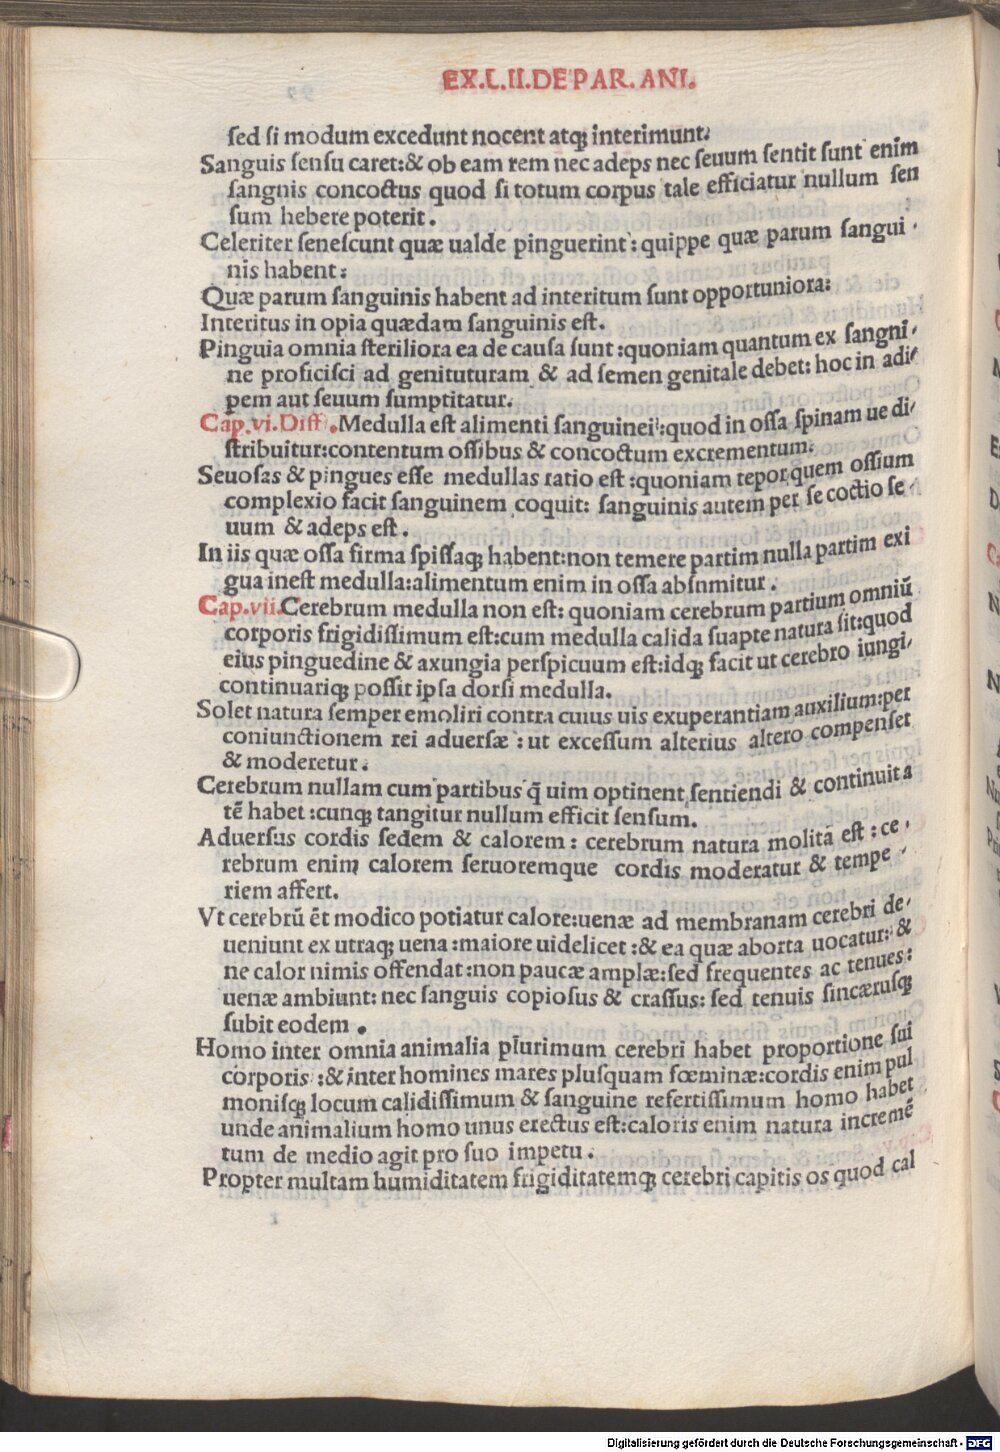 EX.L.II.DE PAR. ANI.
ſed ſi modum excedunt nocent atq; interimunt.
Sanguis ſenſu caret:& ob eam rem nec adeps nec ſeuum ſentit ſunt enim
ſangnis concoctus quod ſi totum corpus tale efficiatur nullum ſen
ſum hebere poterit.
Celeriter ſeneſcunt quæ ualde pinguerint: quippe quæ parum ſangui
nis habent:
Quæ parum ſanguinis habent ad interitum ſunt opportuniora:
Interitus in opia quædam ſanguinis eſt.
Pinguia omnia ſteriliora ea de cauſa ſunt:quoniam quantum ex ſangni
ne proficiſci ad genituturam & ad ſemen genitale debet: hoc in adi
pem aut ſeuum ſumptitatur.
Cap.vi.Diff.Medulla eſt alimenti ſanguinei:quod in oſſa ſpinam ue di
ſtribuitur:contentum oſſibus & concoctum excrementum.
Seuoſas & pingues eſſe medullas ratio eſt:quoniam tepor quem oſſium
complexio facit ſanguinem coquit: ſanguinis autem per ſe coctio ſe
uum & adeps eſt.
In iis quæ oſſa firma ſpiſſaq; habent:non temere partim nulla partim exi
gua ineſt medulla:alimentum enim in oſſa abſnmitur.
Cap.vii.Cerebrum medulla non eſt: quoniam cerebrum partium omniū
corporis frigidiſſimum eſt:cum medulla calida ſuapte natura ſit:quod
eius pinguedine & axungia perſpicuum eſt:idq; facit ut cerebro iungi
continuariq; poſſit ipſa dorſi medulla.
Solet natura ſemper emoliri contra cuius uis exuperantiam auxilium:per
coniunctionem rei aduerſæ: ut exceſſum alterius altero compenſet
& moderetur:
Cerebrum nullam cum partibus q̄ uim optinent ſentiendi & continuita
tē habet:cunq; tangitur nullum efficit ſenſum.
Aduerſus cordis ſedem & calorem: cerebrum natura molita eſt: ce
rebrum enim calorem feruoremque cordis moderatur & tempe
riem affert.
Vt cerebrū ēt modico potiatur calore:uenæ ad membranam cerebri de
ueniunt ex utraq; uena:maiore uidelicet:& ea quæ aborta uocatur: &
ne calor nimis offendat:non paucæ amplæ:ſed frequentes ac tenues:
uenæ ambiunt: nec ſanguis copioſus & craſſus: ſed tenuis ſincæruſq;
ſubit eodem.
Homo inter omnia animalia plurimum cerebri habet proportione ſui
corporis:& inter homines mares pluſquam fœminæ:cordis enim pul
moniſq; locum calidiſſimum & ſanguine refertiſſimum homo habet
unde animalium homo unus erectus eſt:caloris enim natura incremē
tum de medio agit pro ſuo impetu.
Propter multam humiditatem frigiditatemq; cerebri capitis os quod cal
Digitalisierung gefördert durch die Deutsche Forschungsgemeinschaft - DFG